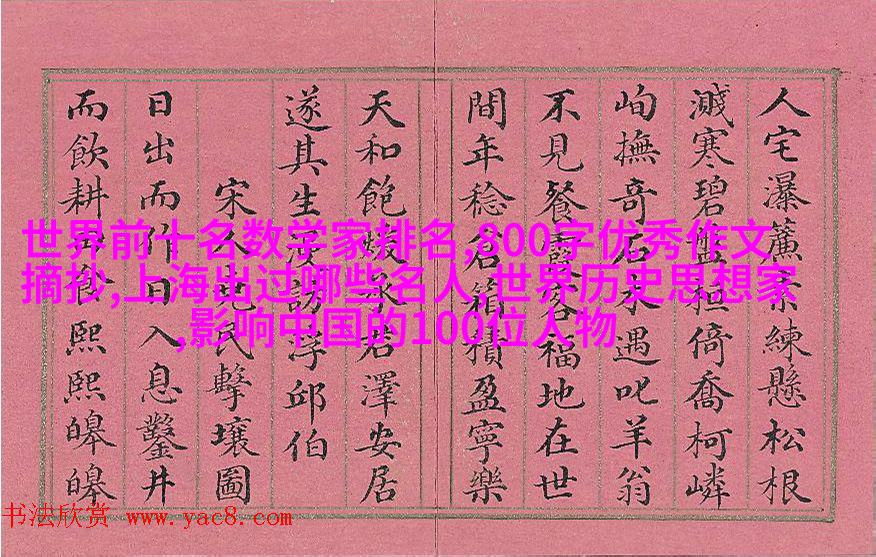 人宅瀑簾素練懸松根
濺寒碧盤桓倚喬柯嶙
峋撫奇石未遇叱羊翁
不見餐霞客福地在世
間年稔倉箱積盈寧樂
天和飽煖承君澤安居
遂其生漫訪浮邱伯
宋人堯民擊壤圖
日出而作日入息鑿井
而飲耕田食熙熙皞皞
世界前十名数学家排名,800字优秀作文
摘抄,上海出过哪些名人,世界历史思想家
,影响中国的100位人物
书法欣赏 www.yac8.com